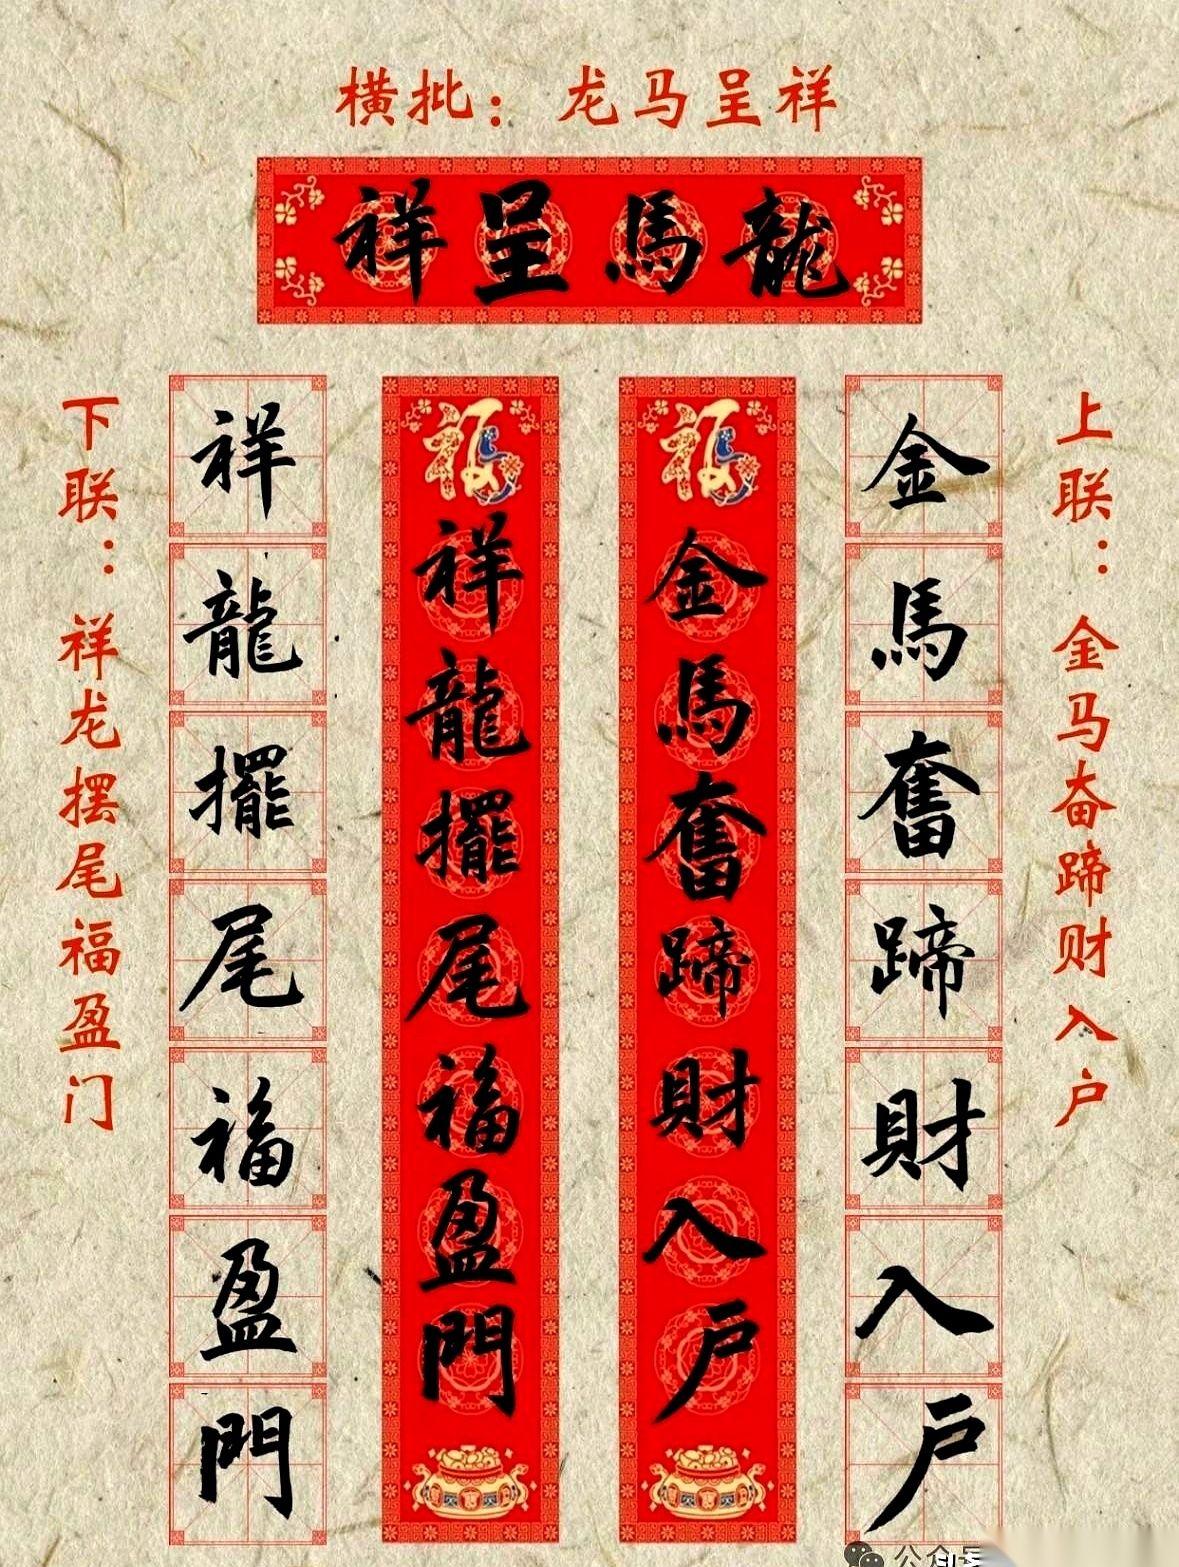 横批：龙马呈祥
祥呈馬龍
上联：金马奋蹄财入户
金馬奮蹄財入户
福金馬奮蹄財入户
福祥龍擺尾福盈門
祥龍擺尾福盈門
下联：祥龙摆尾福盈门
公众号